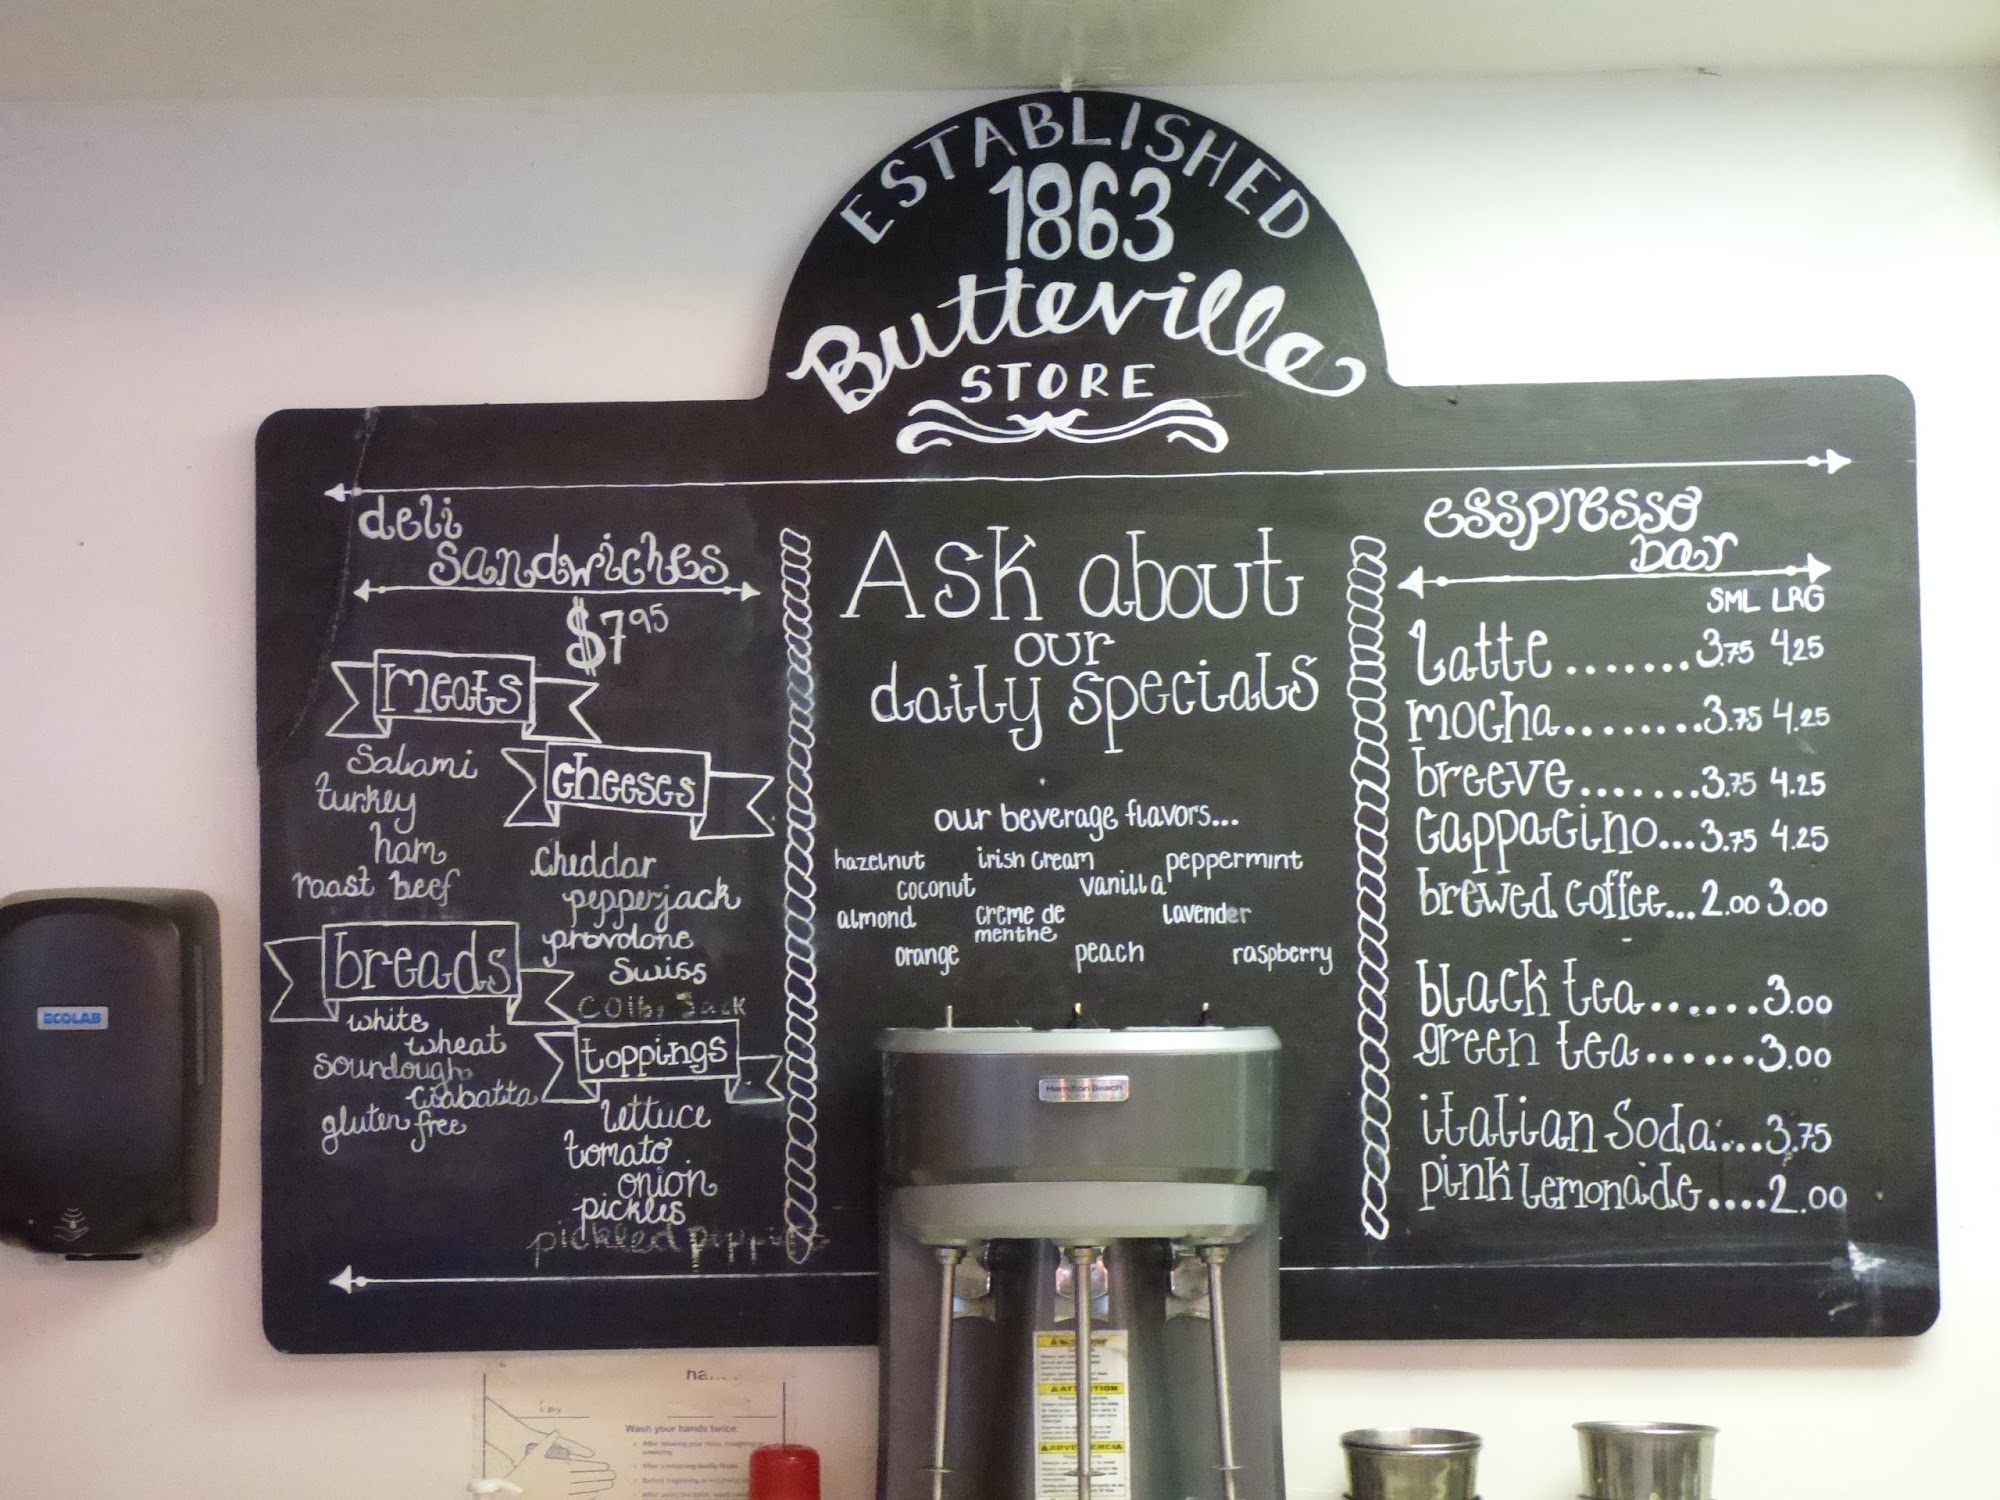 ESTABLISHED
1863
Butteville
STORE
deli
sandwiches
$7 95
meats
salami
turkey
ham
roast beef
breads
white
wheat
sourdough
ciabatta
gluten free
cheeses
cheddar
pepperjack
provolone
swiss
Jack
toppings
lettuce
tomato
onion
pickles
pickled
Ask about
our
daily specials
our beverage flavors...
hazelnut irish cream peppermint
coconut vanilla
almond creme de menthe lavender
orange peach raspberry
esspresso
bar
SML LRG
latte.......3.75 4.25
mocha........3.75 4.25
breeve.......3.75 4.25
cappacino...3.75 4.25
brewed coffee...2.00 3.00
black tea......3.00
green tea......3.00
italian soda....3.75
pink lemonade....2.00
ECOLAB
Hamilton Beach
Dry
Wash your hands twice:
ATTENTION
ADVERTENCIA